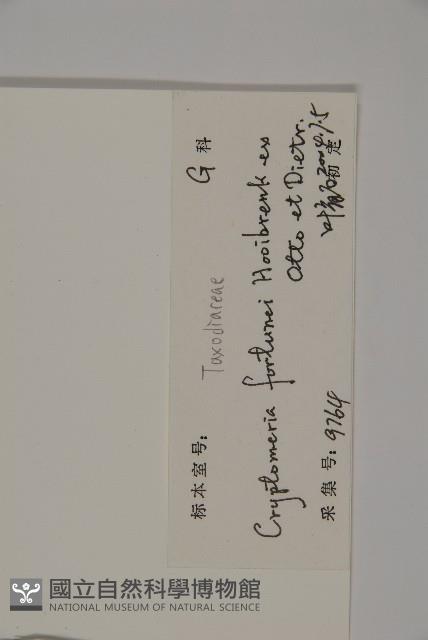 标本室号: G科
Taxodiaceae
Cryptomeria fortunei Hooibrenk ex
Otto et Dietr.
采集号: 9764 初定
國立自然科學博物館
NATIONAL MUSEUM OF NATURAL SCIENCE